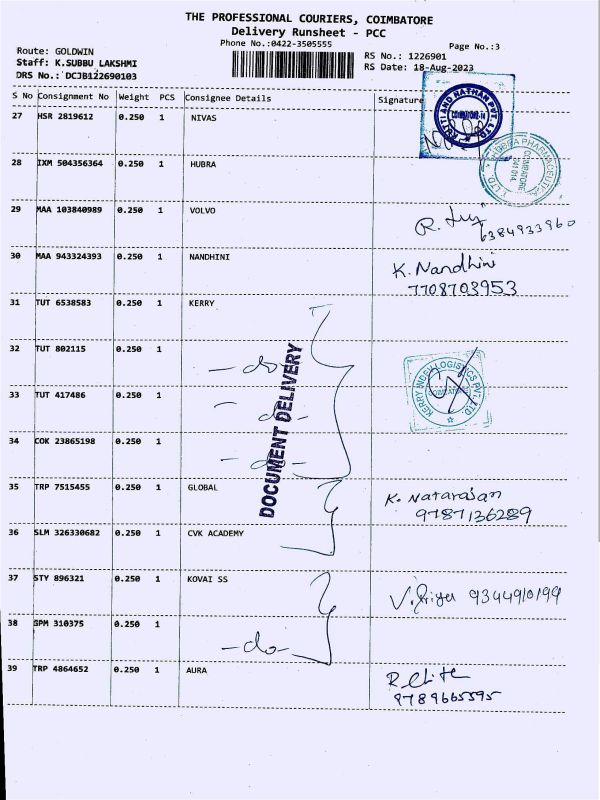 THE PROFESSIONAL COURIERS, COIMBATORE
Delivery Runsheet - PCC
Phone No.:0422-3505555
Page No.:3
Route: GOLDWIN
Staff: K.SUBBU LAKSHMI
DRS No.: DCJB122690103
RS No.: 1226901
RS Date: 18-Aug-2023
S No Consignment No Weight PCS Consignee Details Signature
27 HSR 2819612 0.250 1 NIVAS
28 IXM 504356364 0.250 1 HUBRA
29 MAA 103840989 0.250 1 VOLVO
R.
6384933960
30 MAA 943324393 0.250 1 NANDHINI
K. Nandhini
7708703953
31 TUT 6538583 0.250 1 KERRY
32 TUT 802115 0.250 1
- do -
33 TUT 417486 0.250 1
- do -
KERRY INDEV LOGISTICS PVT. LTD.
COIMBATORE
34 COK 23865198 0.250 1
- do -
DOCUMENT DELIVERY
35 TRP 7515455 0.250 1 GLOBAL
K. Natarajan
9787136289
36 SLM 326330682 0.250 1 CVK ACADEMY
37 STY 896321 0.250 1 KOVAI SS
V. 9344910199
38 SPM 310375 0.250 1
- do -
39 TRP 4864652 0.250 1 AURA
9789665595